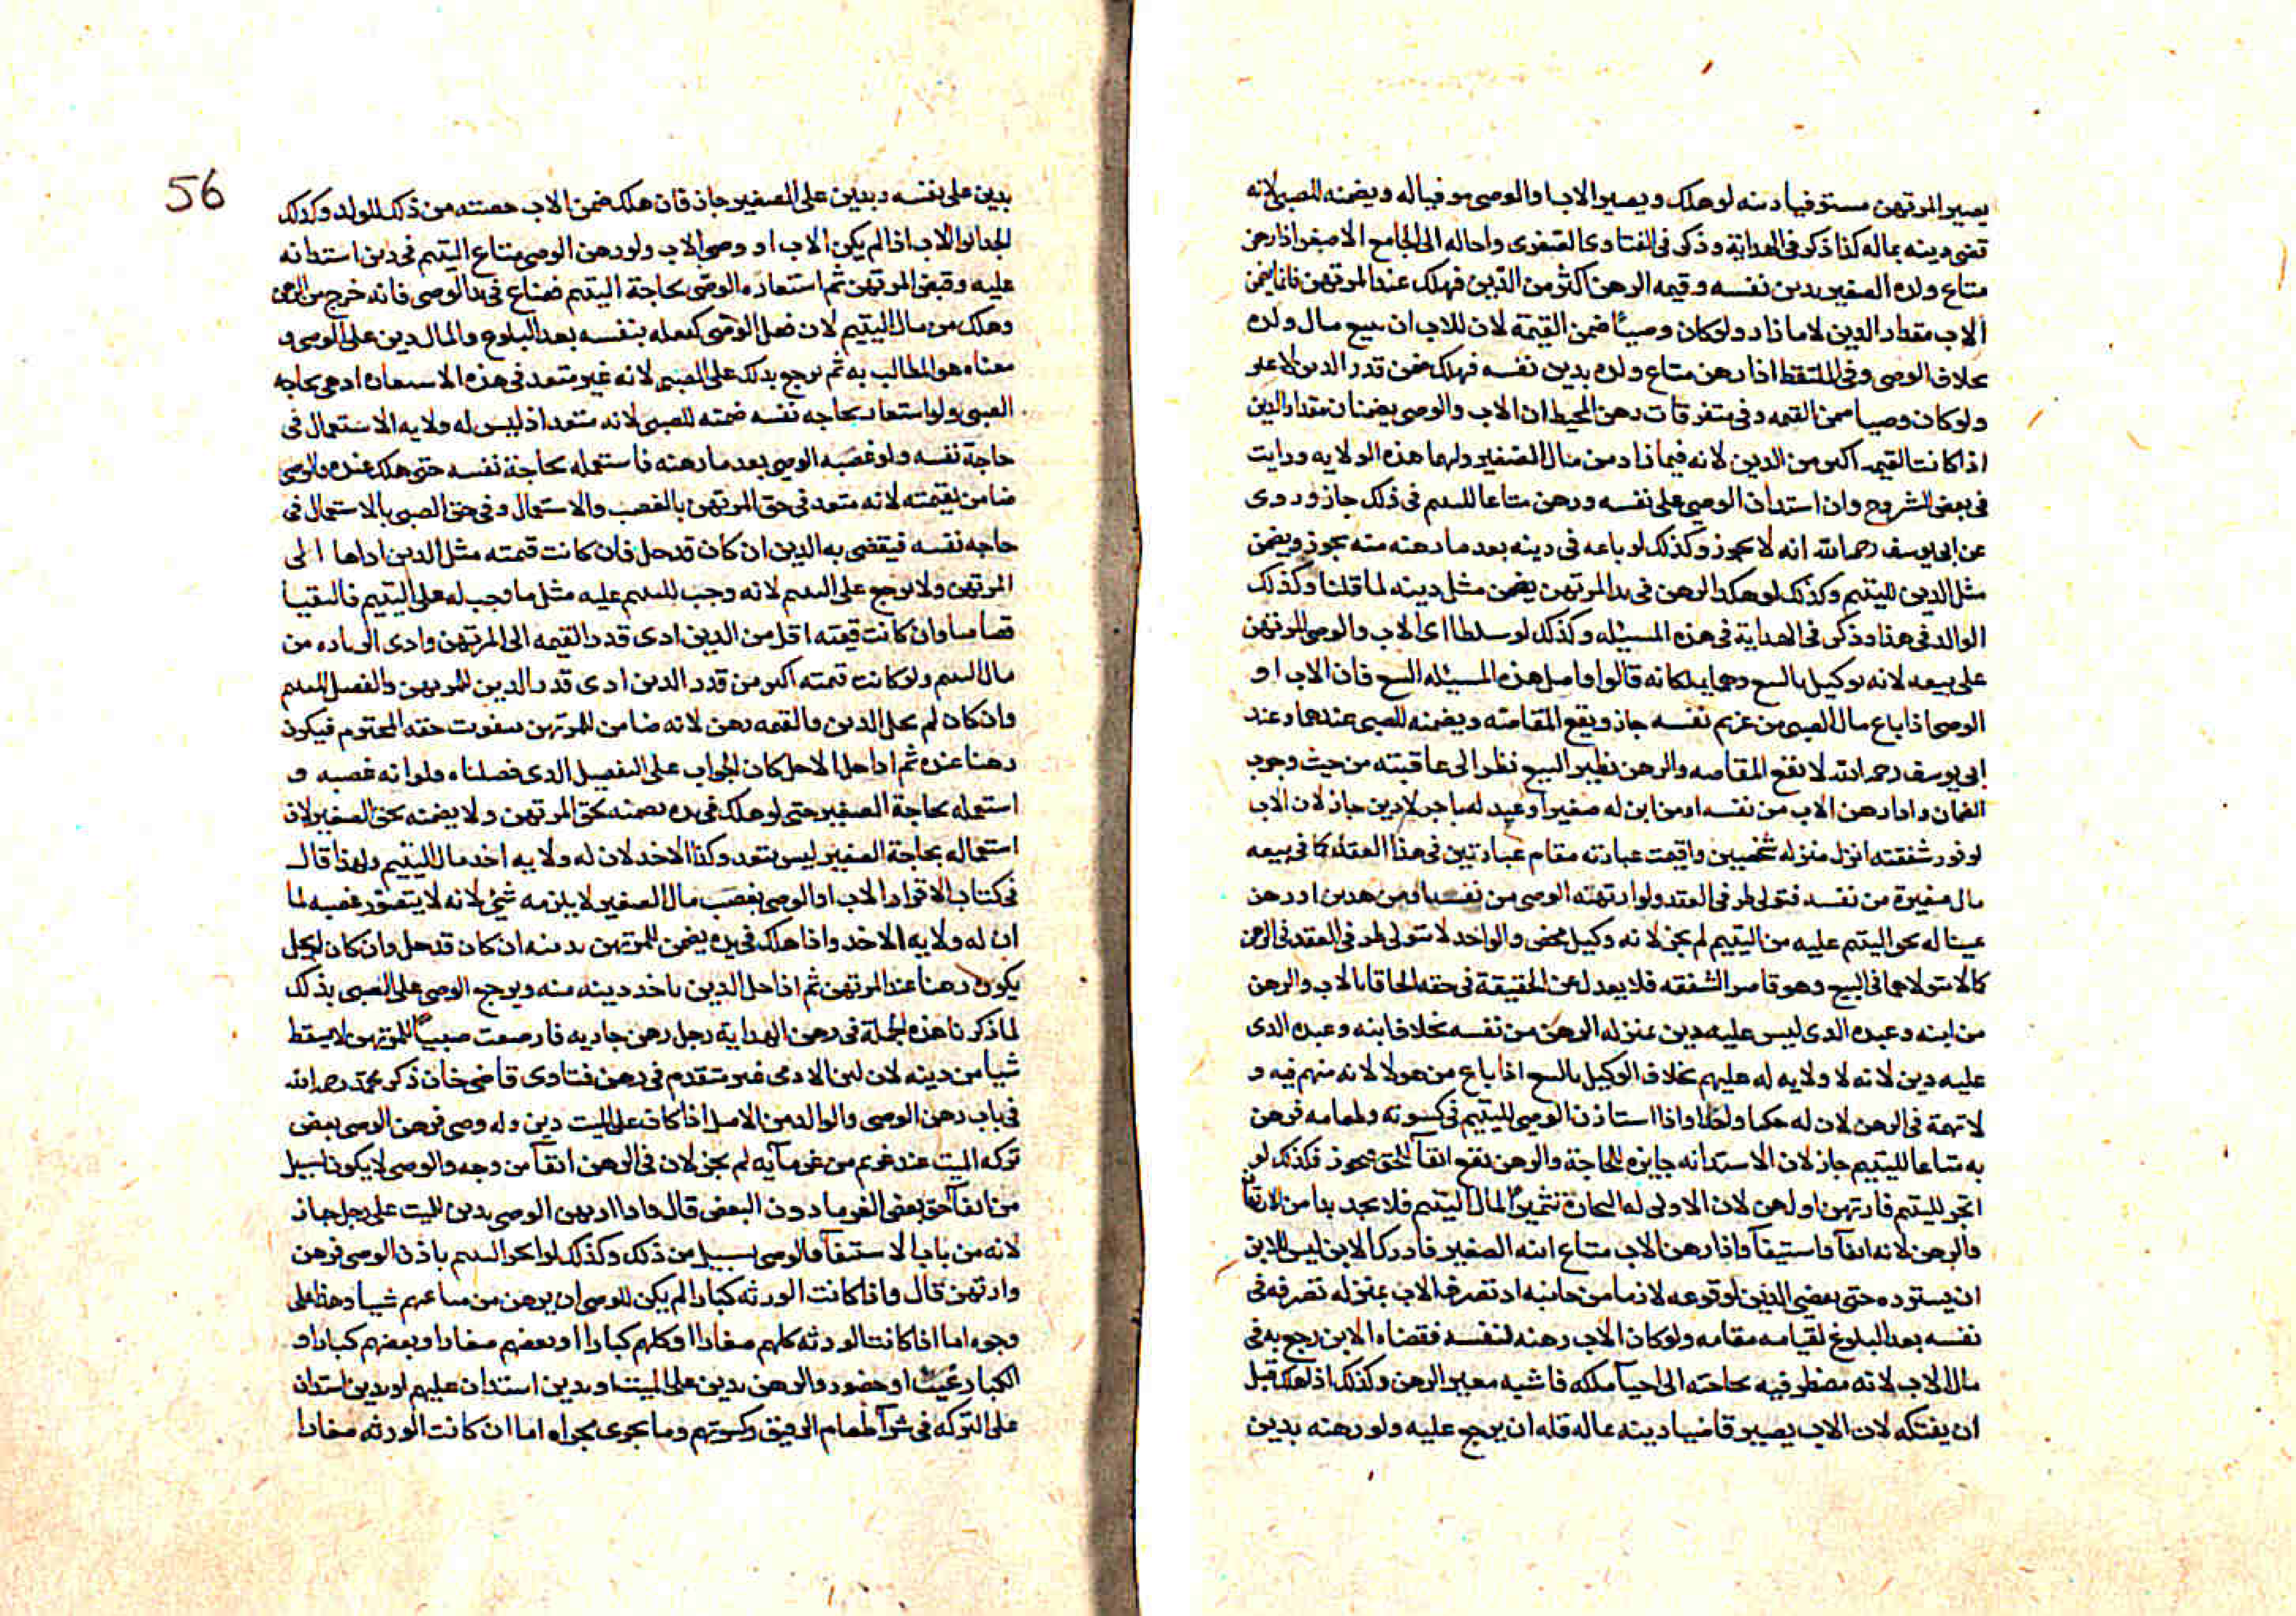 يصير المرتهن مستوفيا دينه لو هلك ويصير الاب او الوصي موفيا له ويضمنه للصبي لانه
قضى دينه بماله كذا ذكر في الهداية وذكر في الفتاوى الصغرى واحاله الى الجامع الاصغر اذا رهن
متاع ولده الصغير بدين نفسه وقيمه الرهن اكثر من الدين فهلك عند المرتهن فانما يضمن
الاب مقدار الدين لا ما زاد ولو كان وصيا ضمن القيمة لان للاب ان يبيع مال ولده
بخلاف الوصي وفي الملتقط اذا رهن متاع ولده بدين نفسه فهلك ضمن قدر الدين لا غير
ولو كان وصيا ضمن القيمه وفي متفرقات رهن المحيط ان الاب والوصي يضمنان مقدار الدين
اذا كانت القيمه اكبر من الدين لانه فيما زاد من مال الصغير ولهما هذه الولايه ورايت
في بعض الشروح وان استدان الوصي على نفسه ورهن متاعا لليتيم في ذلك جاز وروى
عن ابي يوسف رحمه الله انه لا يجوز وكذلك لو باعه في دينه بعد ما رهنه منه يجوز ويضمن
مثل الدين لليتيم وكذلك لو هلك الرهن في يد المرتهن يضمن مثل دينه لما قلنا وكذلك
الوالد في هذا وذكر في الهداية في هذه المسئله وكذلك لو سلطا اى الاب والوصي المرتهن
على بيعه لانه توكيل بالبيع وهما يملكانه قالوا اصل هذه المسئله البيع فان الاب او
الوصي اذا باع مال الصبي من غريم نفسه جاز ويقع المقاصة ويضمنه للصبي عندهما وعند
ابي يوسف رحمه الله لا تقع المقاصه والرهن نظير البيع نظرا الى عاقبته من حيث وجوب
الضمان واذا رهن الاب من نفسه او من ابن له صغير او عبد له تاجر لا دين جاز لان الاب
لوفور شفقته انزل منزله شخصين واقيمت عبارته مقام عبارتين في هذا العقد كما في بيعه
مال صغيره من نفسه فتولى طرفي العقد ولو ارتهنه الوصي من نفسه او من هدين او رهن
عينا له بحق اليتيم عليه من اليتيم لم يجز لانه وكيل محض والواحد لا يتولى طرفي العقد في الرهن
كما لا يتولاهما في البيع وهو قاصر الشفقه فلا يعدل عن الحقيقة في حقه الحاقا بالاب والرهن
من ابنه وعبده الدى ليس عليه دين بمنزله الرهن من نفسه بخلاف ابنه وعبده الدى
عليه دين لانه لا ولايه له عليهم بخلاف الوكيل بالبيع اذا باع من هولا لانه متهم فيه و
لا تهمة في الرهن لان له حكما واحدا واذا استاذن الوصي لليتيم في كسوته وطعامه فرهن
به متاعا لليتيم جاز لان الاستدانه جايزه للحاجة والرهن تقع ايفآ للحق فيجوز فكذلك لو
اتجر لليتيم فارتهن او رهن لان الاولى له التجارة تثميرا لمال اليتيم فلا يجد بدا من الارتهان
والرهن لانه ايفآ واستيفآ واذا رهن الاب متاع ابنه الصغير فادرك الابن ليس للابن
ان يسترده حتى يقضي الدين لوقوعه لازما من جانبه اذ تصرف الاب بمنزله تصرفه في
نفسه بعد البلوغ لقيامه مقامه ولو كان الاب رهنه لنفسه فقضاه الابن رجع به في
مال الاب لانه مضطر فيه بحاجته الى احيآ ملكه فاشبه معير الرهن وكذلك اذا هلك قبل
ان يفتكه لان الاب يصير قاضيا دينه بماله فله ان يرجع عليه ولو رهنه بدين
56
بدين على نفسه وبدين على الصغير جاز فان هلك ضمن الاب حصته من ذلك للولد وكذلك
الجد ابو الاب اذا لم يكن الاب او وصي الاب ولو رهن الوصي متاع اليتيم في دين استدانه
عليه وقبض المرتهن ثم استعاره الوصي بحاجة اليتيم فضاع في يد الوصي فانه خرج من الرهن
وهلك من مال اليتيم لان فعل الوصي كفعله بنفسه بعد البلوغ والمال دين على الوصي و
معناه هو المطالب به ثم يرجع بدلك على الصبي لانه غير متعد في هذه الاستعاره اذ هي بحاجه
الصبي ولو استعار بحاجه نفسه ضمنه للصبي لانه متعد اذ ليس له ولايه الاستعمال في
حاجة نفسه ولو غصبه الوصي بعد ما رهنه فاستعمله بحاجة نفسه حتى هلك عنده فالوصي
ضامن لقيمته لانه متعد في حق المرتهن بالغصب والاستعمال وفي حق الصبي بالاستعمال في
حاجه نفسه فيقضى به الدين ان كان قد حل فان كانت قيمته مثل الدين اداها الى
المرتهن ولا يرجع على اليتيم لانه وجب لليتيم عليه مثل ما وجب له على اليتيم فالتقيا
قصاصا وان كانت قيمته اقل من الدين ادى قدر القيمه الى المرتهن وادى الزياده من
مال اليتيم ولو كانت قيمته اكبر من قدر الدين ادى قدر الدين للمرتهن والفضل لليتيم
وان كان لم يحل الدين فالقيمه رهن لانه ضامن للمرتهن بتفويت حقه المحترم فيكون
رهنا عنده ثم اذا حل الاجل كان الجواب على التفصيل الدى فصلناه ولو انه غصبه و
استعمله بحاجة الصغير حتى لو هلك في يده يضمنه بحق المرتهن ولا يضمنه بحق الصغير لان
استعماله بحاجة الصغير ليس بتعد وكذا الاخد لان له ولايه اخد مال اليتيم ولهذا قال
في كتاب الاقرار الاب او الوصي بغصب مال الصغير لا يلزمه شئ لانه لا يتصور غصبه لما
ان له ولايه الاخد واذا هلك في يده يضمن للمرتهن بدينه ان كان قد حل وان كان لم يحل
يكون رهنا عند المرتهن ثم اذا حل الدين ياخد دينه منه ويرجع الوصي على الصبي بذلك
لما ذكرنا هذه الجملة في رهن الهداية رجل رهن جاريه فارضعت صبيا للمرتهن لا يسقط
شيا من دينه لان لبن الادمى غير متقوم في رهن فتاوى قاضي خان ذكر محمد رحمه الله
في باب رهن الوصي والوالد من الاصل اذا كان على الميت دين وله وصي فرهن الوصي بعض
تركه الميت عند غريم من غرمآيه لم يجز لان في الرهن ايفآ من وجه والوصي لا يكون بسبيل
من ايفآ حق بعض الغرما دون البعض قال واذا ارتهن الوصي بدين للميت على رجل جاز
لانه من باب الاستيفآ والوصي بسبيل من ذلك وكذلك لو اتجر اليتيم باذن الوصي فرهن
وارتهن قال واذا كانت الورثه كبارا لم يكن للوصي ان يرهن من متاعهم شيا وهذا على
وجوه اما اذا كانت الورثه كلهم صغارا او كلهم كبارا او بعضهم صغارا وبعضهم كبارا و
الكبار غيب او حضور والرهن بدين على الميت او بدين استدان عليهم او بدين استدان
على التركه في شرآ طعام الرقيق وكسوتهم وما يجرى مجراه اما ان كانت الورثه صغارا